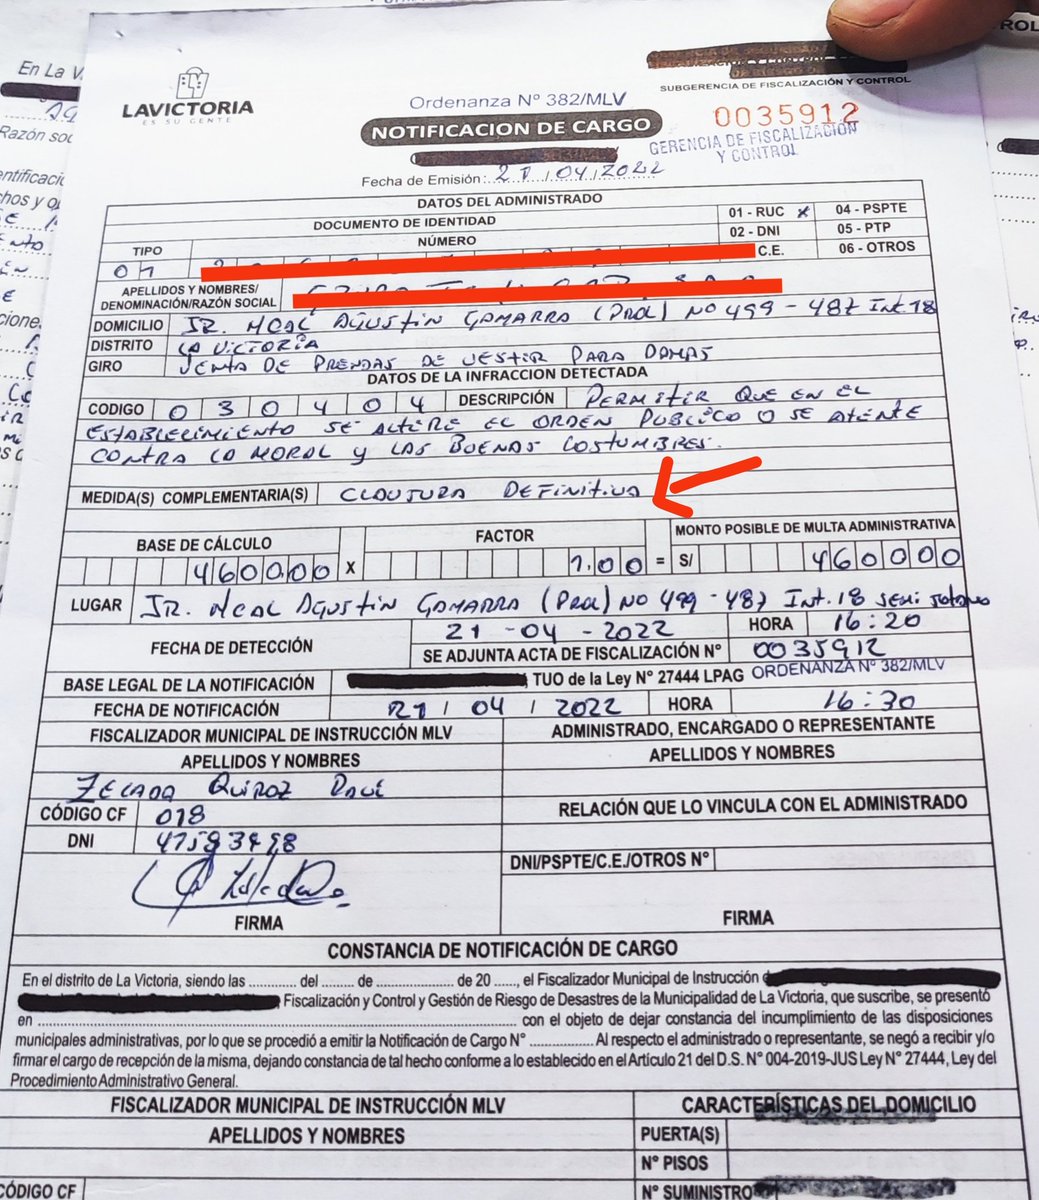 En La V
Razón soc
entificaci
hos y op
LAVICTORIA
ES SU GENTE
SUBGERENCIA DE FISCALIZACIÓN Y CONTROL
Ordenanza Nº 382/MLV
0035912
NOTIFICACION DE CARGO
GERENCIA DE FISCALIZACIÓN
Y CONTROL
Fecha de Emisión: 21/04/2022
DATOS DEL ADMINISTRADO
DOCUMENTO DE IDENTIDAD
TIPO
NÚMERO
01 - RUC x
04 - PSPTE
02 - DNI
05 - PTP
C.E.
06 - OTROS
01
APELLIDOS Y NOMBRES/
DENOMINACIÓN/RAZÓN SOCIAL
DOMICILIO JR. MCAL AGUSTIN GAMARRA (PROL) NO 499 - 487 Int. 18
DISTRITO LA VICTORIA
GIRO VENTA DE PRENDAS DE VESTIR PARA DAMAS
DATOS DE LA INFRACCION DETECTADA
CODIGO 030404 DESCRIPCIÓN PERMITIR QUE EN EL
ESTABLECIMIENTO SE ALTERE EL ORDEN PUBLICO O SE ATENTE
CONTRA LA MORAL Y LAS BUENAS COSTUMBRES.
MEDIDA(S) COMPLEMENTARIA(S) CLAUSURA DEFINITIVA
BASE DE CÁLCULO
FACTOR
MONTO POSIBLE DE MULTA ADMINISTRATIVA
460000 X 1.00 = S/ 460000
LUGAR JR. MCAL AGUSTIN GAMARRA (PROL) NO 499 - 487 Int. 18 SEMI SOTANO
FECHA DE DETECCIÓN
21 - 04 - 2022 HORA 16:20
SE ADJUNTA ACTA DE FISCALIZACIÓN Nº 0035912
BASE LEGAL DE LA NOTIFICACIÓN , TUO de la Ley Nº 27444 LPAG ORDENANZA Nº 382/MLV
FECHA DE NOTIFICACIÓN 21/04/2022 HORA 16:30
FISCALIZADOR MUNICIPAL DE INSTRUCCIÓN MLV
ADMINISTRADO, ENCARGADO O REPRESENTANTE
APELLIDOS Y NOMBRES
APELLIDOS Y NOMBRES
QUIROZ
RELACIÓN QUE LO VINCULA CON EL ADMINISTRADO
CÓDIGO CF 018
DNI
DNI/PSPTE/C.E./OTROS Nº
FIRMA
FIRMA
CONSTANCIA DE NOTIFICACIÓN DE CARGO
En el distrito de La Victoria, siendo las ............ del ..... de .................... de 20 ....., el Fiscalizador Municipal de Instrucción
Fiscalización y Control y Gestión de Riesgo de Desastres de la Municipalidad de La Victoria, que suscribe, se presentó
en ............................................................ con el objeto de dejar constancia del incumplimiento de las disposiciones
municipales administrativas, por lo que se procedió a emitir la Notificación de Cargo Nº ................. Al respecto el administrado o representante, se negó a recibir y/o
firmar el cargo de recepción de la misma, dejando constancia de tal hecho conforme a lo establecido en el Artículo 21 del D.S. Nº 004-2019-JUS Ley Nº 27444, Ley del
Procedimiento Administrativo General.
FISCALIZADOR MUNICIPAL DE INSTRUCCIÓN MLV
CARACTERÍSTICAS DEL DOMICILIO
APELLIDOS Y NOMBRES
PUERTA(S)
Nº PISOS
CÓDIGO CF
Nº SUMINISTRO